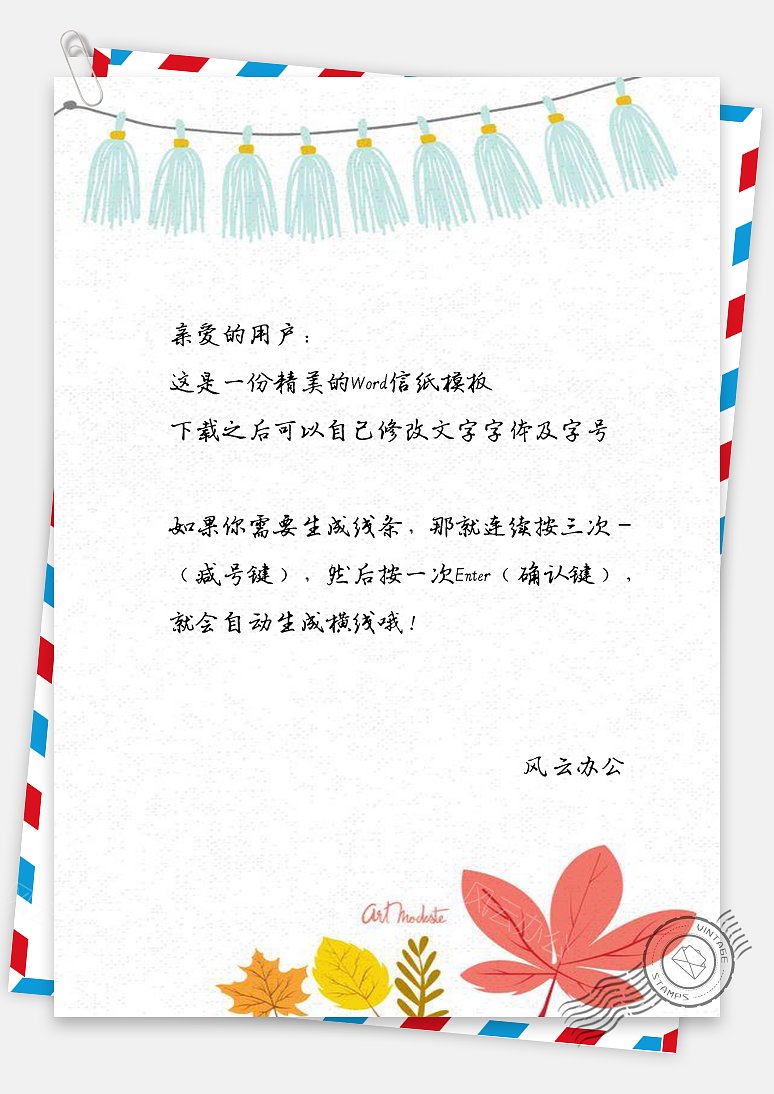 亲爱的用户：
这是一份精美的Word信纸模板
下载之后可以自己修改文字字体及字号
如果你需要生成线条，那就连续按三次－
（减号键），然后按一次Enter（确认键），
就会自动生成横线哦！
风云办公
Art Modeste
VINTAGE
STAMPS